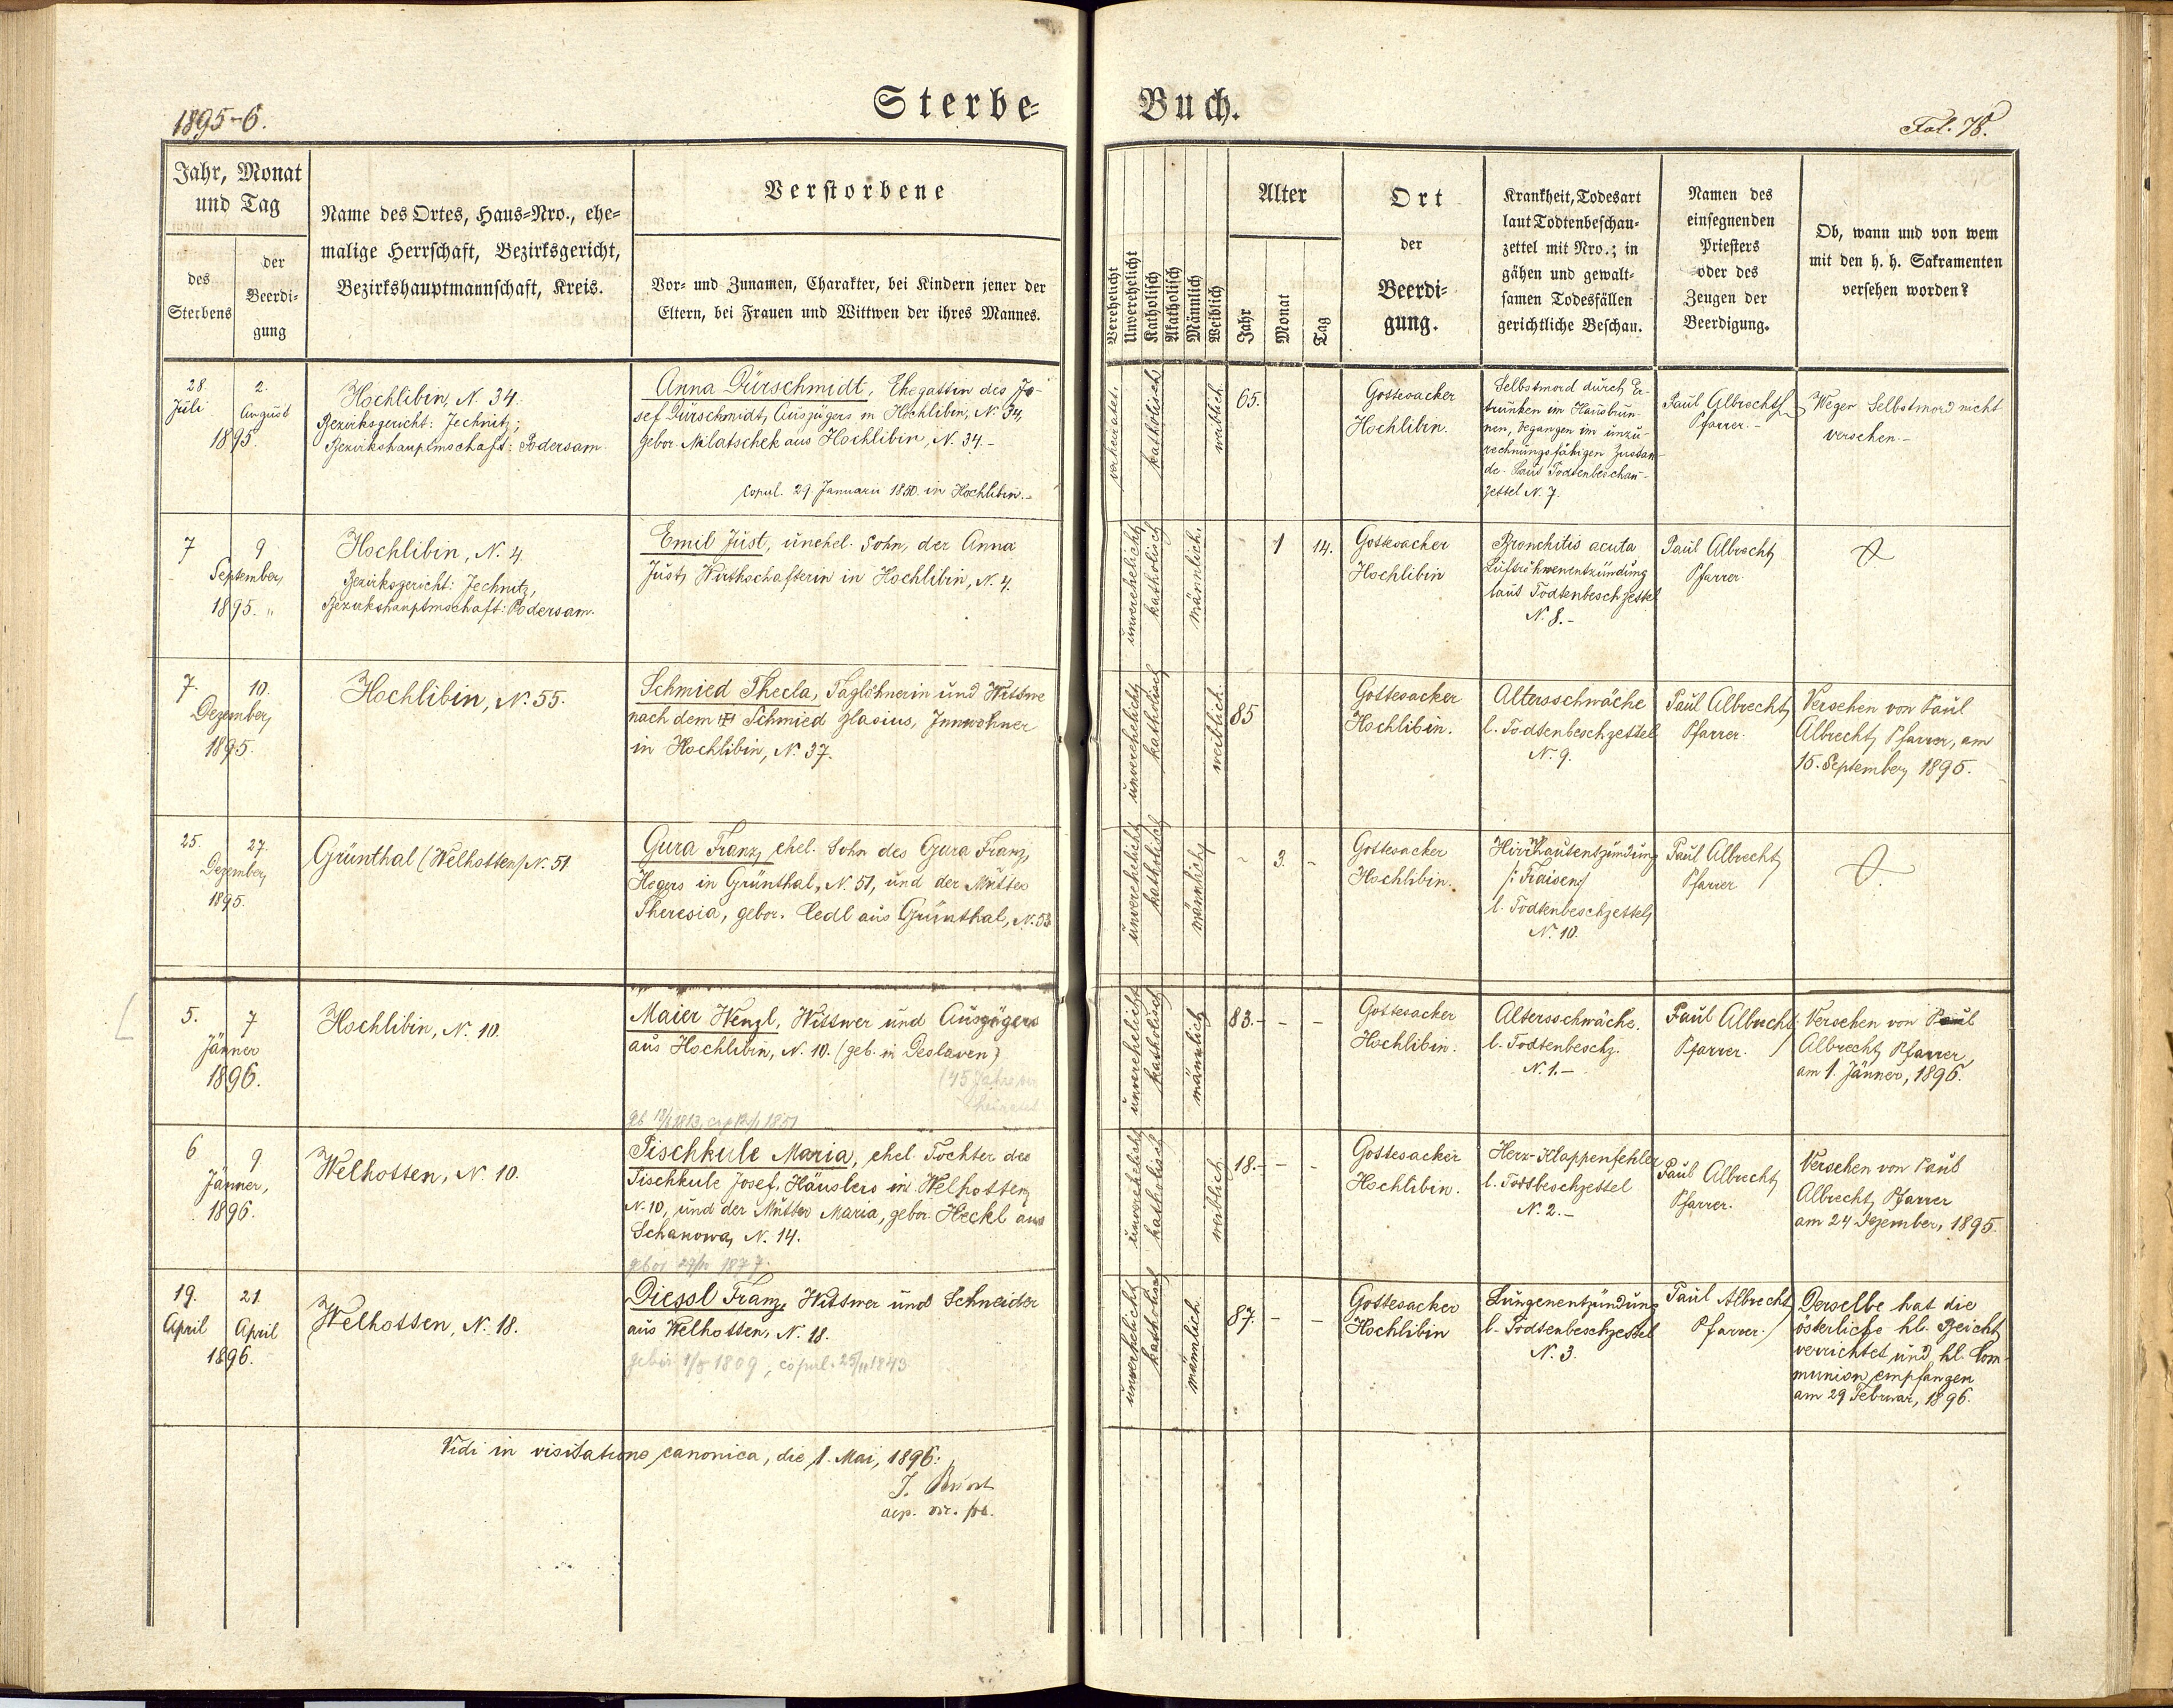 1895-6.
Sterbe-
Buch.
Fol. 78.
Jahr, Monat
und Tag
des
Sterbens
der
Beerdi-
gung
Name des Ortes, Haus-Nro., ehe-
malige Herrschaft, Bezirksgericht,
Bezirkshauptmannschaft, Kreis.
Verstorbene
Vor- und Zunamen, Charakter, bei Kindern jener der
Eltern, bei Frauen und Wittwen der ihres Mannes.
Verehelicht
Unverehelicht
Katholisch
Akatholisch
Männlich
Weiblich
Alter
Jahr
Monat
Tag
Ort
der
Beerdi-
gung.
Krankheit, Todesart
laut Todtenbeschau-
zettel mit Nro.; in
gähen und gewalt-
samen Todesfällen
gerichtliche Beschau.
Namen des
einsegnenden
Priesters
oder des
Zeugen der
Beerdigung.
Ob, wann und von wem
mit den h. h. Sakramenten
versehen worden?
28. 2.
Juli August
1895.
Hochlibin, N. 34.
Bezirksgericht: Jechnitz;
Bezirkshauptmschaft: Podersam
Anna Dürschmidt, Ehegattin des Jo-
sef Dürschmidt, Auszügers in Hochlibin, N. 34,
gebor. Milatschek aus Hochlibin, N. 34.-
Copul. 29. Januarii 1850. in Hochlibin.-
verheiratet.
katholisch
weiblich.
65.
Gottesacker
Hochlibin.
Selbstmord durch Er-
trinken im Hausbrun-
nen, begangen im unzu-
rechnungsfähigen Zustan-
de. Laut Todtenbeschau-
zettel N. 7.
Paul Albrecht,
Pfarrer.-
Wegen Selbstmord nicht
versehen.-
7 9
September,
1895.
Hochlibin, N. 4.
Bezirksgericht: Jechnitz,
Bezirkshauptmschaft: Podersam.
Emil Just, unehel. Sohn, der Anna
Just, Wirthschafterin in Hochlibin, N. 4.
unverehelicht,
katholisch
männlich.
1 14.
Gottesacker
Hochlibin
Bronchitis acuta
Luftröhrenentzündung
laut Todtenbeschzettel
N. 8.-
Paul Albrecht,
Pfarrer.
7. 10.
Dezember,
1895.
Hochlibin, N. 55.
Schmied Thecla, Taglöhnerin und Wittwe
nach dem Schmied Blasius, Innwohner
in Hochlibin, N. 37.
unverehelicht,
katholisch
weiblich.
85
Gottesacker
Hochlibin.
Altersschwäche
l. Todtenbeschzettel
N. 9.
Paul Albrecht,
Pfarrer.
Versehen von Paul
Albrecht, Pfarrer, am
15. September, 1895.
25. 27.
Dezember,
1895.
Grünthal (Welhotten) N. 51
Gura Franz, ehel. Sohn des Gura Franz,
Hegers in Grünthal, N. 51, und der Mutter
Theresia, gebor. Cedl aus Grünthal, N. 53
unverehelicht
katholisch
männlich,
- 3. -
Gottesacker
Hochlibin.
Hirnhautentzündung
/: Fraisen/
l. Todtenbeschzettel,
N. 10.
Paul Albrecht,
Pfarrer
5. 7
Jänner
1896.
Hochlibin, N. 10.
Maier Wenzl, Wittwer und Auszügers
aus Hochlibin, N. 10. (geb. in Deslaven)
(45 Jahre
unverehelicht
katholisch
männlich
83. - -
Gottesacker
Hochlibin.
Altersschwäche.
l. Todtenbeschz.
N. 1.-
Paul Albrecht
Pfarrer.
Versehen von Paul
Albrecht, Pfarrer,
am 1. Jänner, 1896.
6 9
Jänner,
1896.
Welhotten, N. 10.
Tischkule Maria, ehel. Tochter des
Tischkule Josef, Häuslers in Welhotten,
N. 10, und der Mutter Maria, gebor. Heckl aus
Schanowa, N. 14.
unverehelicht,
katholisch
weiblich
18. - -
Gottesacker
Hochlibin.
Herz-Klappenfehler
l. Todtbeschzettel
N. 2.-
Paul Albrecht,
Pfarrer.
Versehen von Paul
Albrecht, Pfarrer
am 24 Dezember, 1895.
19. 21.
April April
1896.
Welhotten, N. 18.
Diessl Franz, Wittwer und Schneider
aus Welhotten, N. 18.
gebor. 1/8 1809, copul. 25/11 1843
unverehelicht,
katholisch
männlich.
87. - -
Gottesacker
Hochlibin
Lungenentzündung
l. Todtenbeschzettel
N. 3.
Paul Albrecht,
Pfarrer.
Derselbe hat die
österliche hl. Beicht,
verrichtet und hl. Com-
munion empfangen
am 29 Februar, 1896.
Vidi in visitatione canonica, die 1. Mai, 1896.